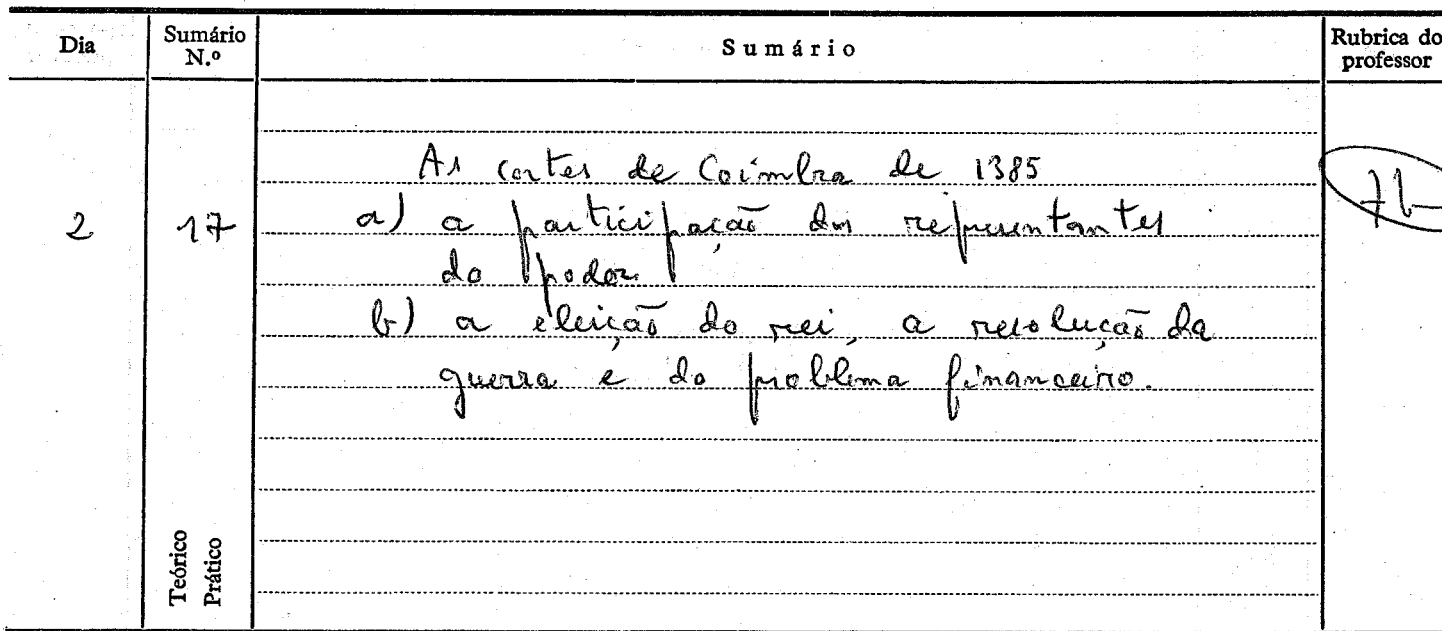 Dia
Sumário N.º
Sumário
Rubrica do professor
As cortes de Coimbra de 1385
2
17
a) a participação dos representantes
do poder
b) a eleição do rei, a resolução da
guerra e do problema financeiro.
Teórico
Prático